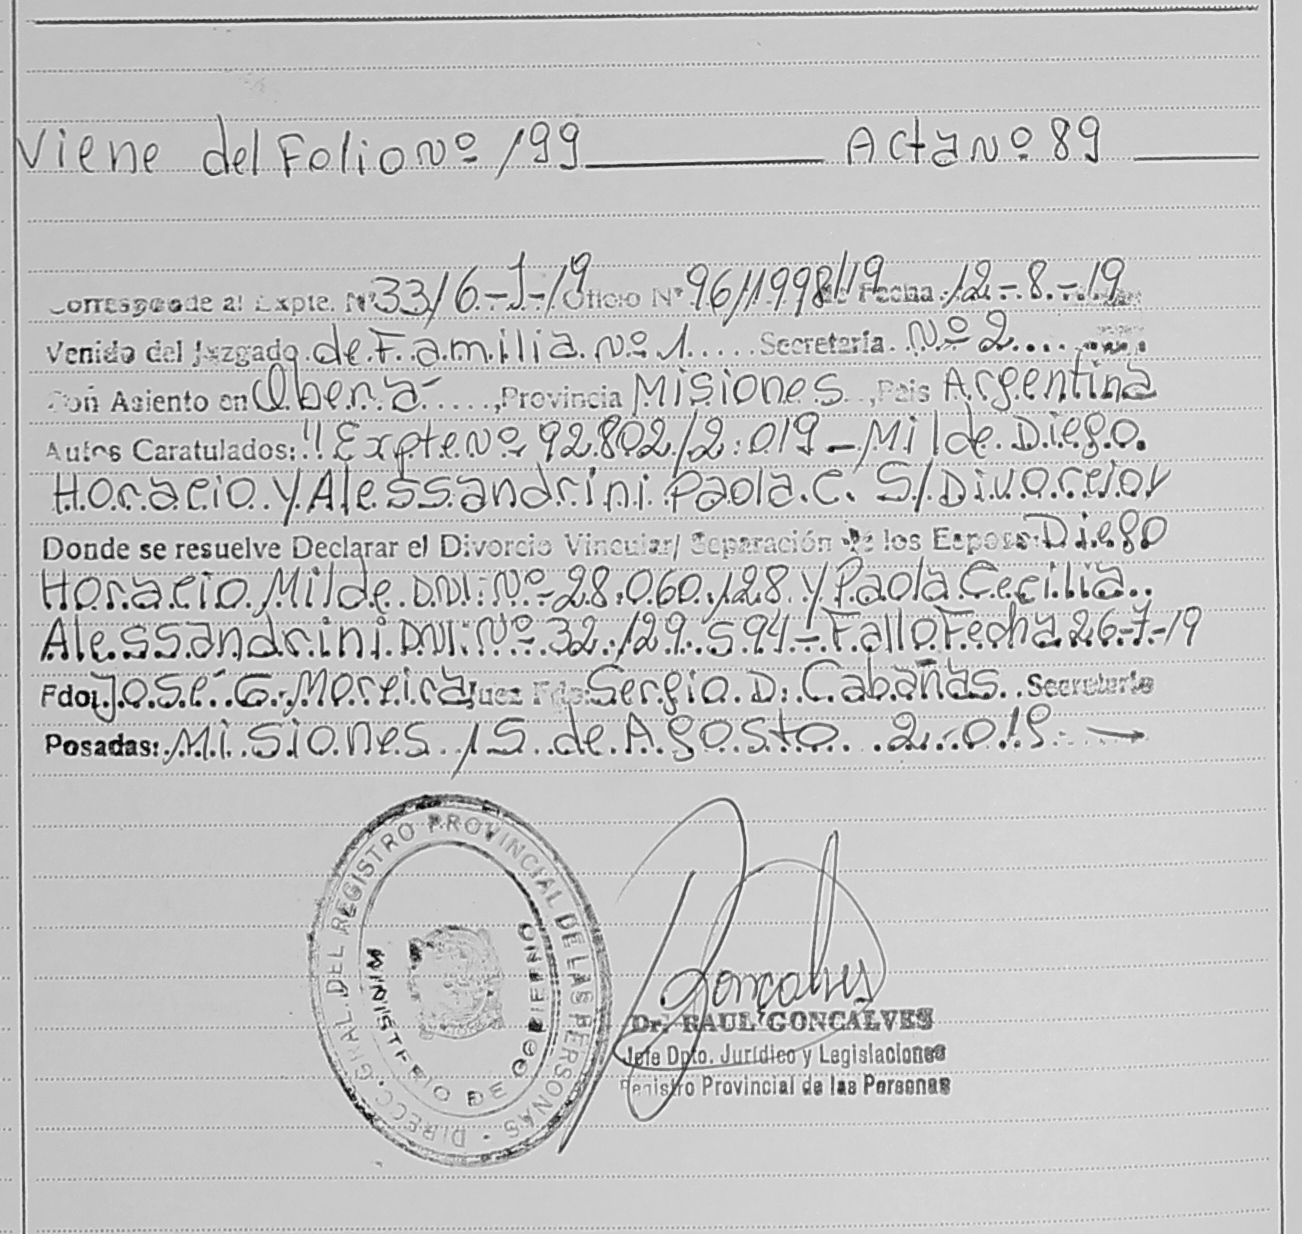 Viene del Folio Nº 199 Acta Nº 89
Corresponde al Expte. Nº 3316-J-19 Oficio Nº 96/1998/19 de Fecha 12-8-19
Venido del Juzgado de Familia Nº 1 Secretaria Nº 2
Con Asiento en Oberá, Provincia Misiones, Pais Argentina
Autos Caratulados: "Expte Nº 92.802/2.019 - Milde Diego
Horacio y Alessandrini Paola C. S/ Divorcio"
Donde se resuelve Declarar el Divorcio Vincular/ Separación de los Esposos: Diego
Horacio Milde DNI: Nº 28.060.128 y Paola Cecilia
Alessandrini DNI: Nº 32.129.594 - Fallo Fecha 26-7-19
Fdo: José G. Moreira Juez Fdo: Sergio D. Cabañas Secretario
Posadas: Misiones 15 de Agosto 2.019
DIRECC. GRAL DEL REGISTRO PROVINCIAL DE LAS PERSONAS
MINISTERIO DE GOBIERNO
Gonçalves
Dr. RAUL GONCALVES
Jefe Dpto. Jurídico y Legislaciones
Registro Provincial de las Personas